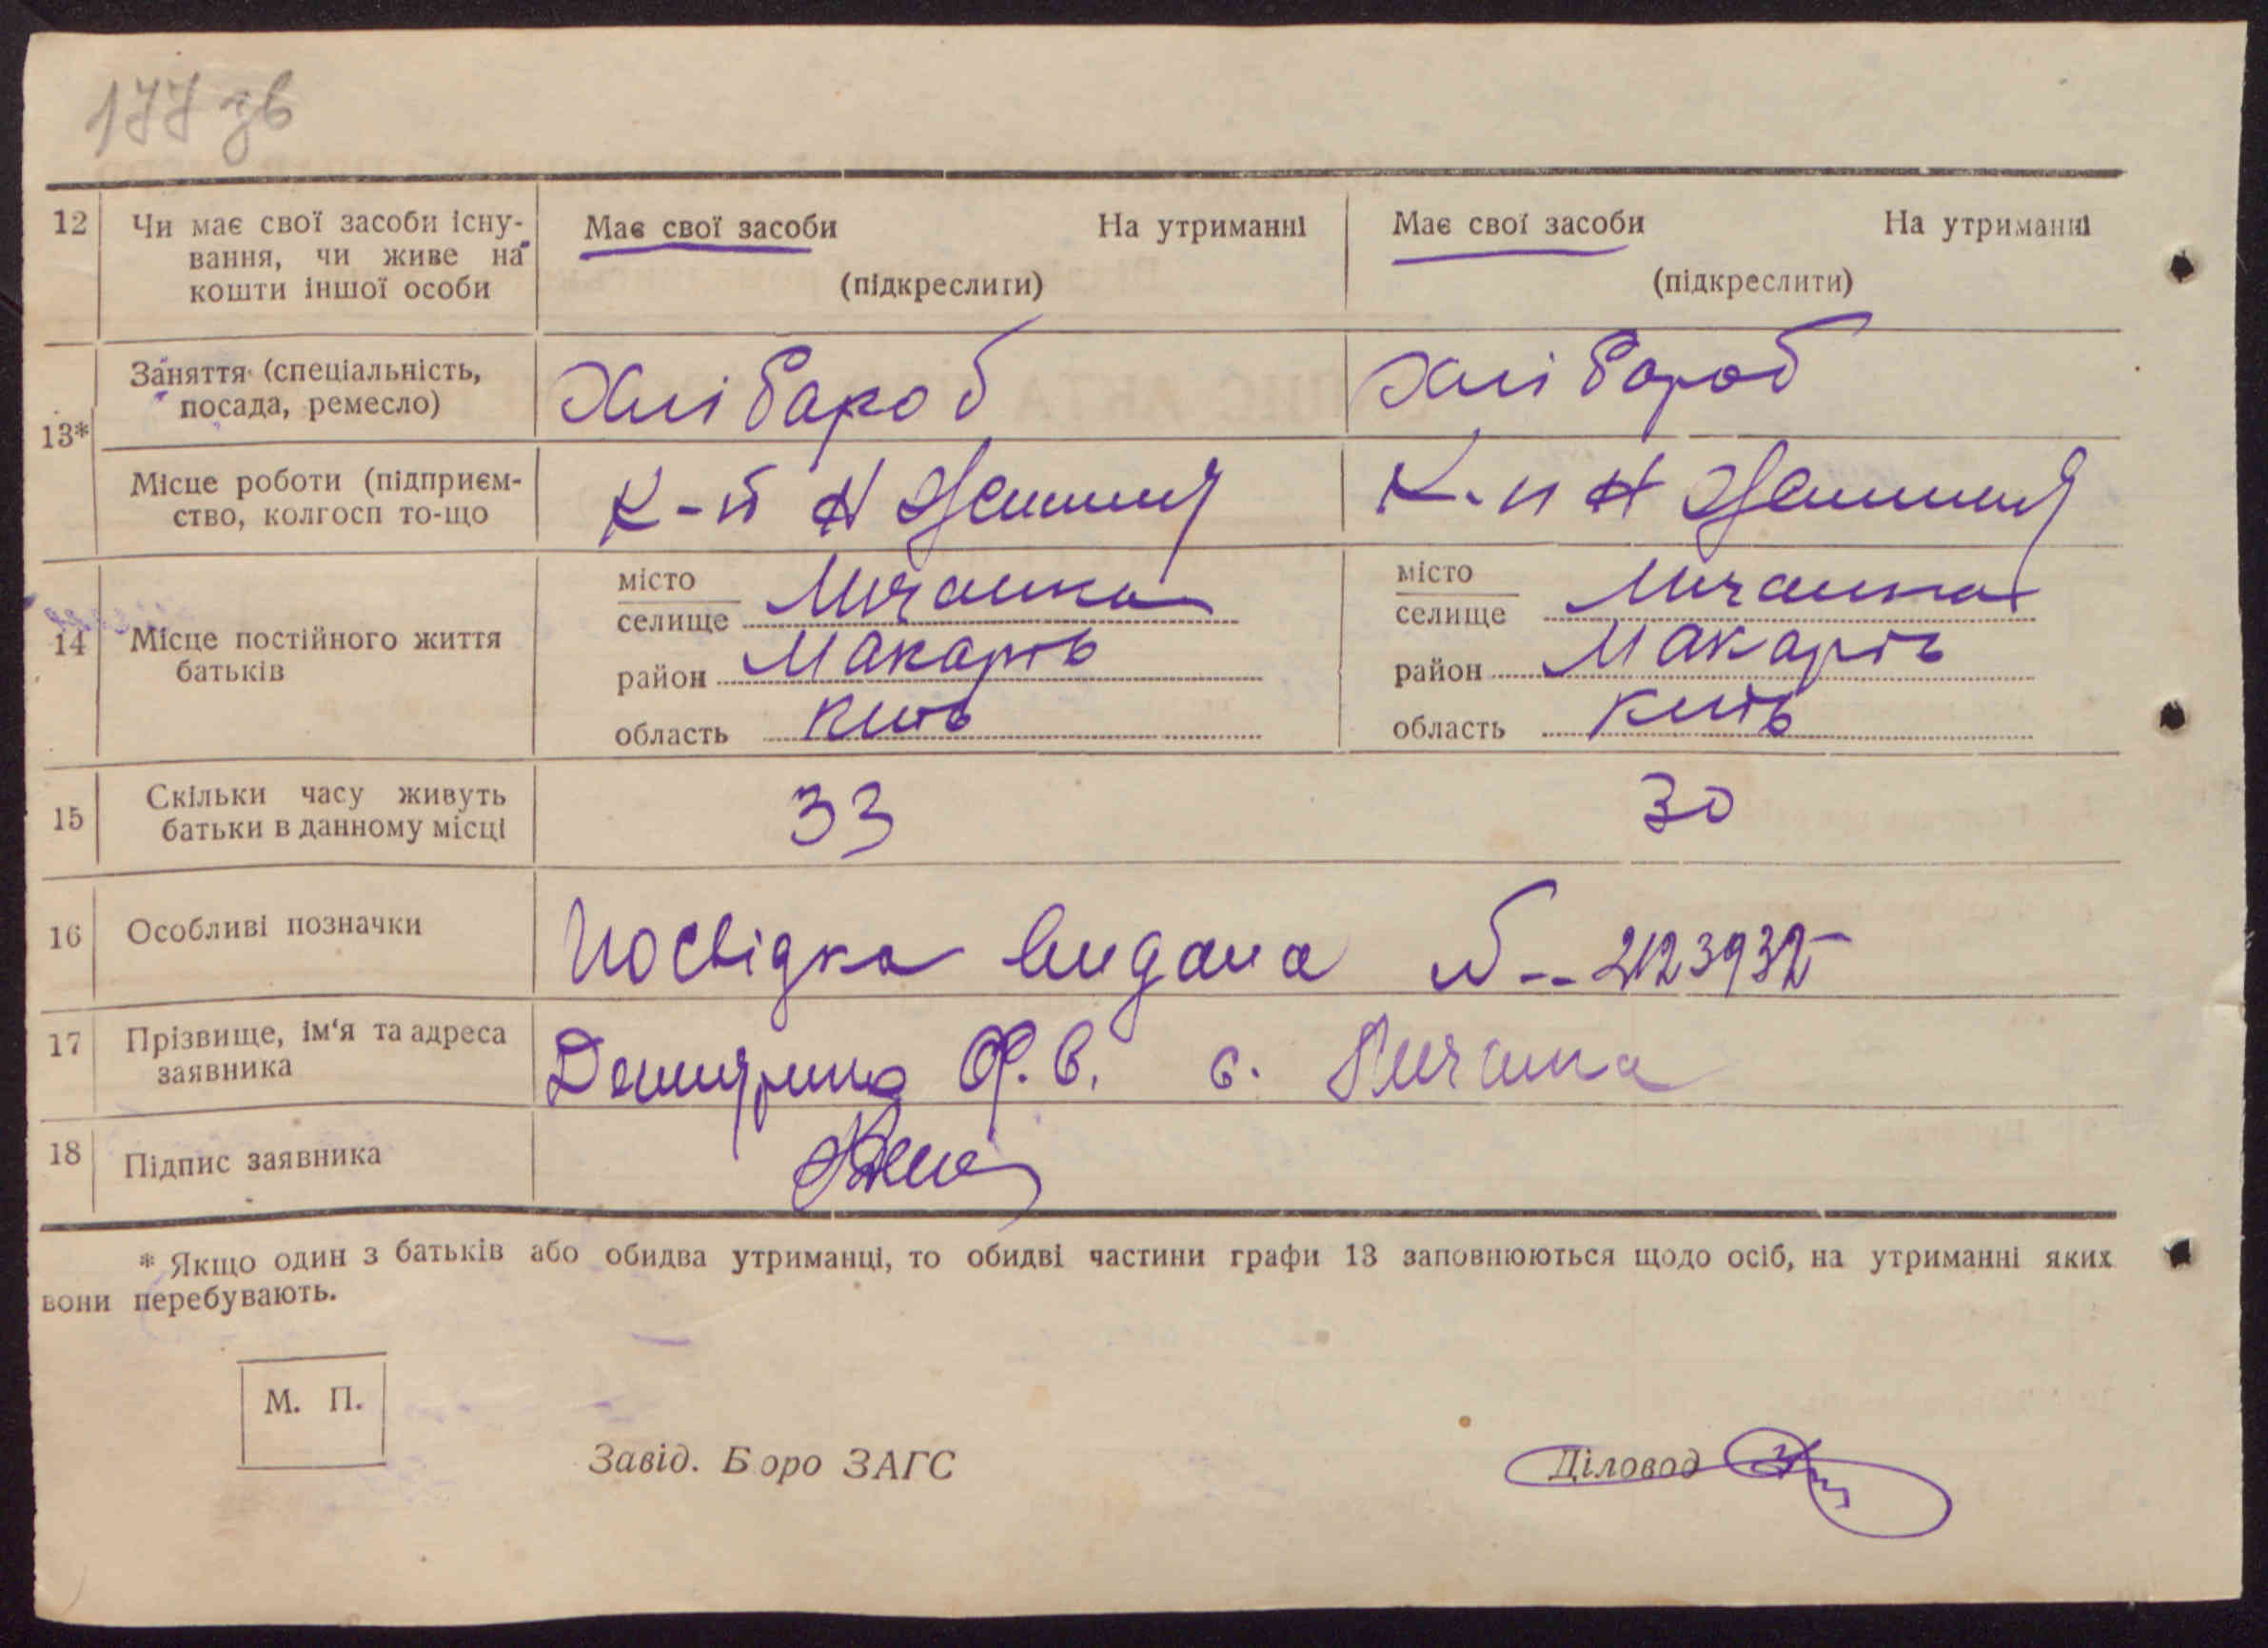 177 зв
12 Чи має свої засоби існу-
вання, чи живе на
кошти іншої особи
Має свої засоби На утриманні
(підкреслити)
Має свої засоби На утриманні
(підкреслити)
13*
Заняття (спеціальність,
посада, ремесло)
Хлібароб
Хлібароб
Місце роботи (підприєм-
ство, колгосп то-що
14 Місце постійного життя
батьків
місто
селище Мичанка
район Макарів
область Київ
місто
селище Мичанка
район Макарів
область Київ
15 Скільки часу живуть
батьки в данному місці
33
30
16 Особливі позначки
Посвідка видана
17 Прізвище, ім'я та адреса
заявника
Ф. В. с.
18 Підпис заявника
* Якщо один з батьків або обидва утриманці, то обидві частини графи 13 заповнюються щодо осіб, на утриманні яких
вони перебувають.
М. П.
Завід. Бюро ЗАГС
Діловод